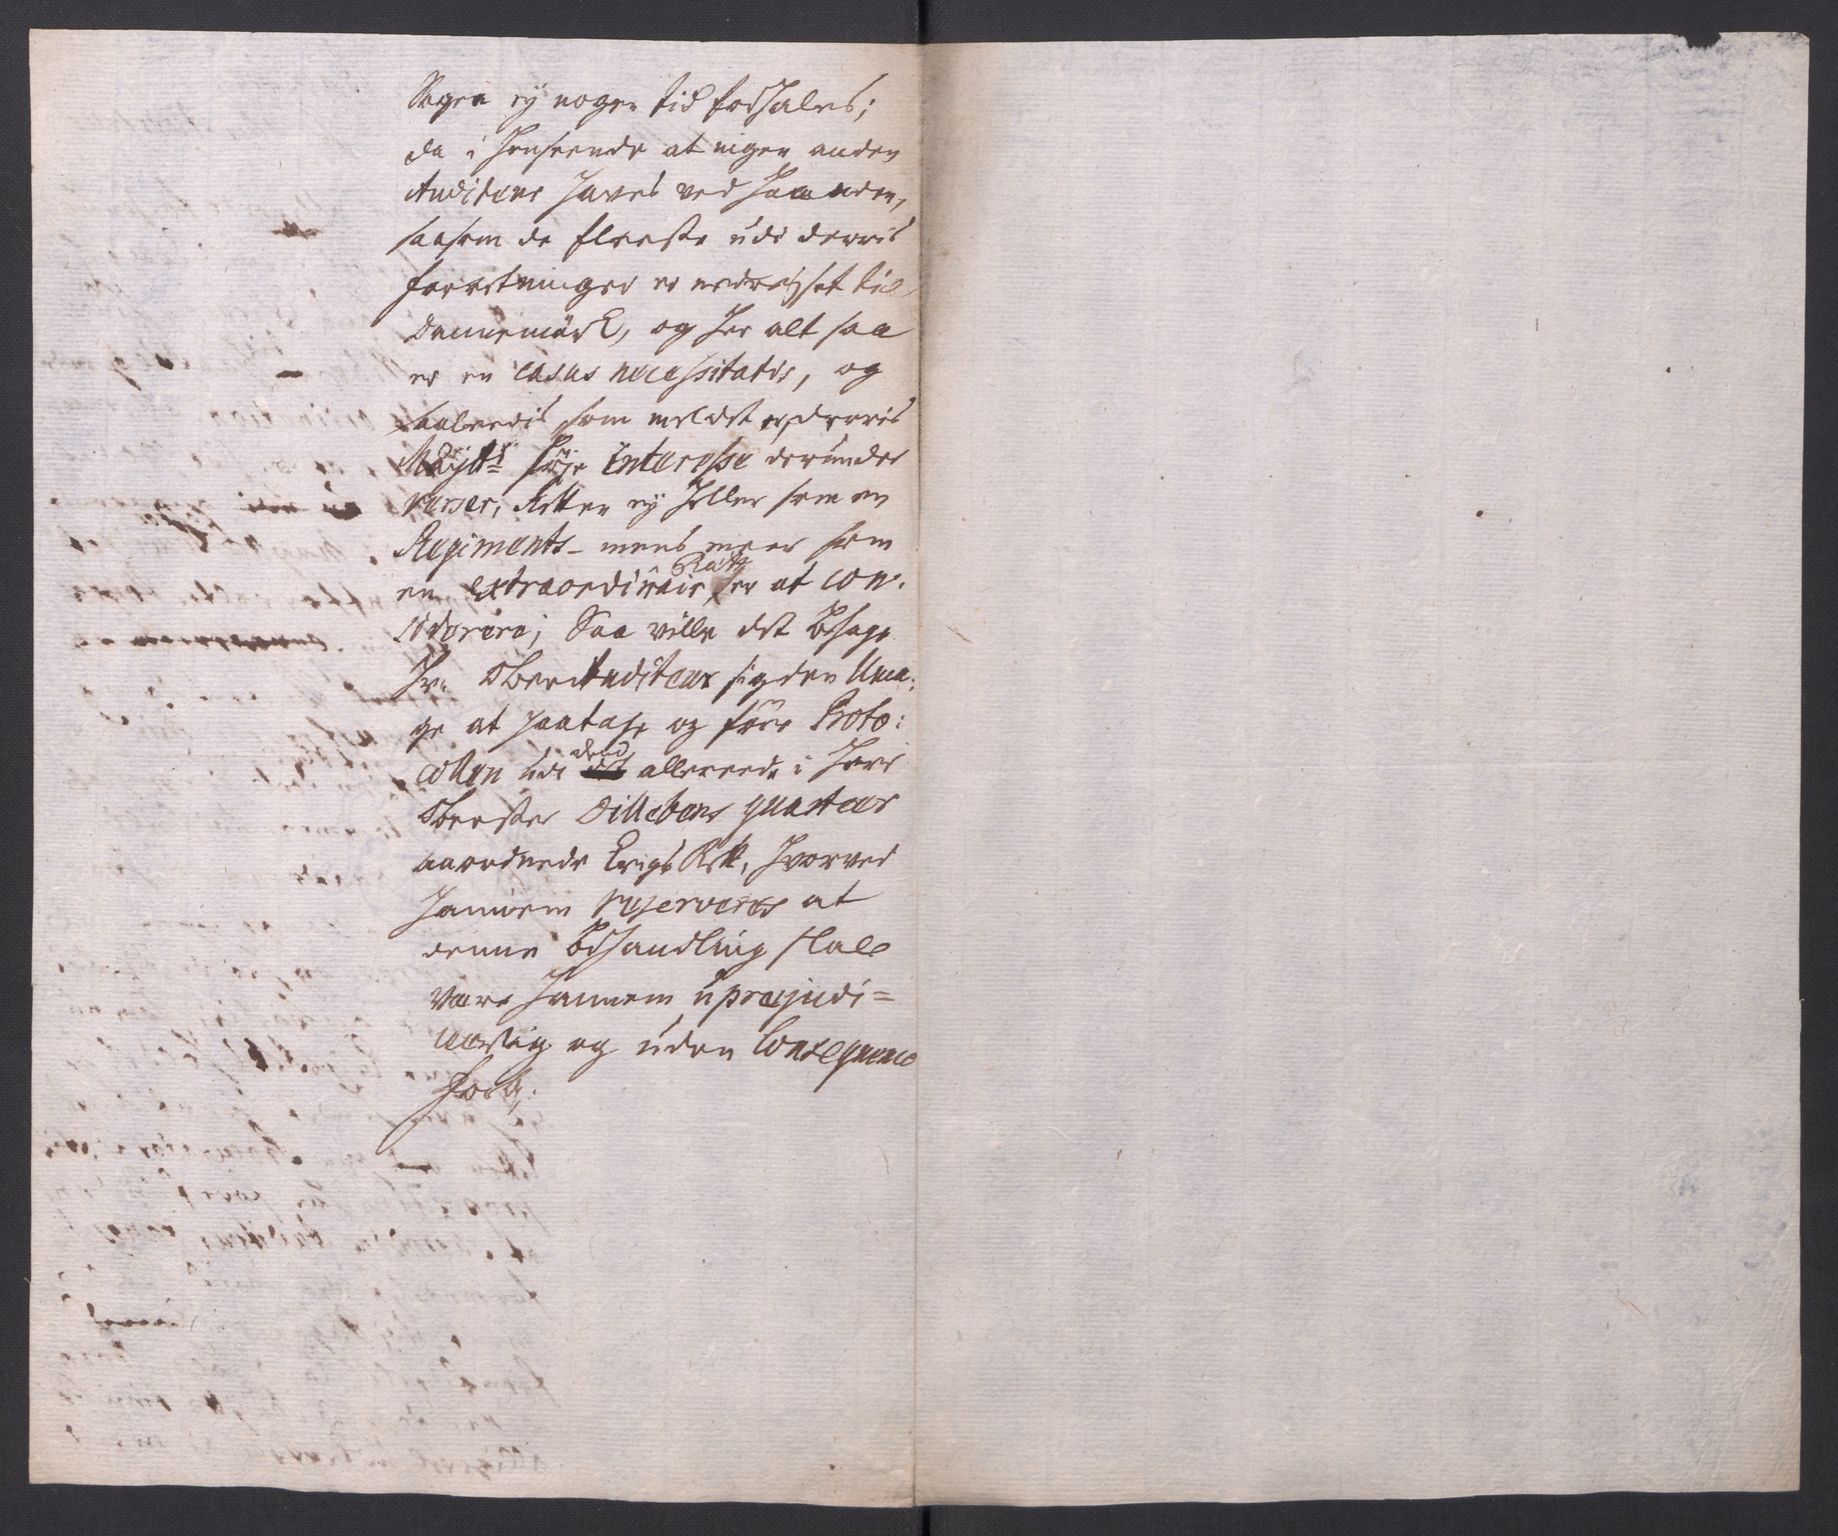 Sagen ej nogen tid forhales;
da i henseende at ingen anden
Auditeur haves ved Haanden,
saasom de fleeste udi derris
forretninger er nedreyset til
Dannemark, og her alt saa
er en casus necessitatis, og
saaledis som meldt er, derris
Mayts: höje interesse derunder
verser, Retten ej heller som en
Regiments- mens meer som
en extraordinair Rett er at con-
siderere; Saa ville det behage
Hr. Ober Auditeur sig den Uma-
ge at paatage og före Proto:
collen udi dend allereede i Herr
Oberster Dillebens quarteer
anordnede Krigs Rett, hvorved
hannem reserveres at
denne behandling skal
være hannem uprejudi=
cerlig og uden Consequence